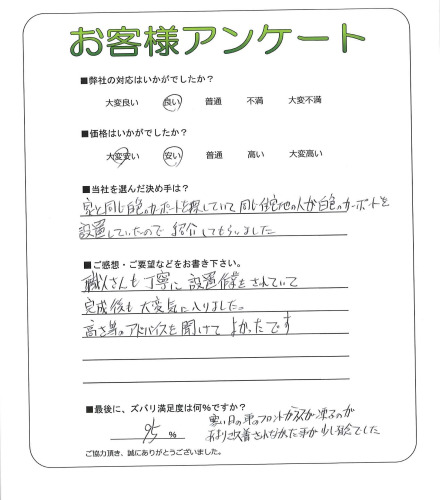 お客様アンケート
■弊社の対応はいかがでしたか？
大変良い 良い 普通 不満 大変不満
■価格はいかがでしたか？
大変安い 安い 普通 高い 大変高い
■当社を選んだ決め手は？
家と同じ白色のカーポートを探していて 同じ住宅地の人が白色のカーポートを
設置していたので 紹介してもらいました
■ご感想・ご要望などをお書き下さい。
職人さんも丁寧に設置作業をされていて
完成後も大変気に入りました。
高さ等のアドバイスを聞けて よかったです
■最後に、ズバリ満足度は何％ですか？
95 %
寒い日の車のフロントガラスが凍るのが
あまり改善されなかった事が少し残念でした
ご協力頂き、誠にありがとうございました。